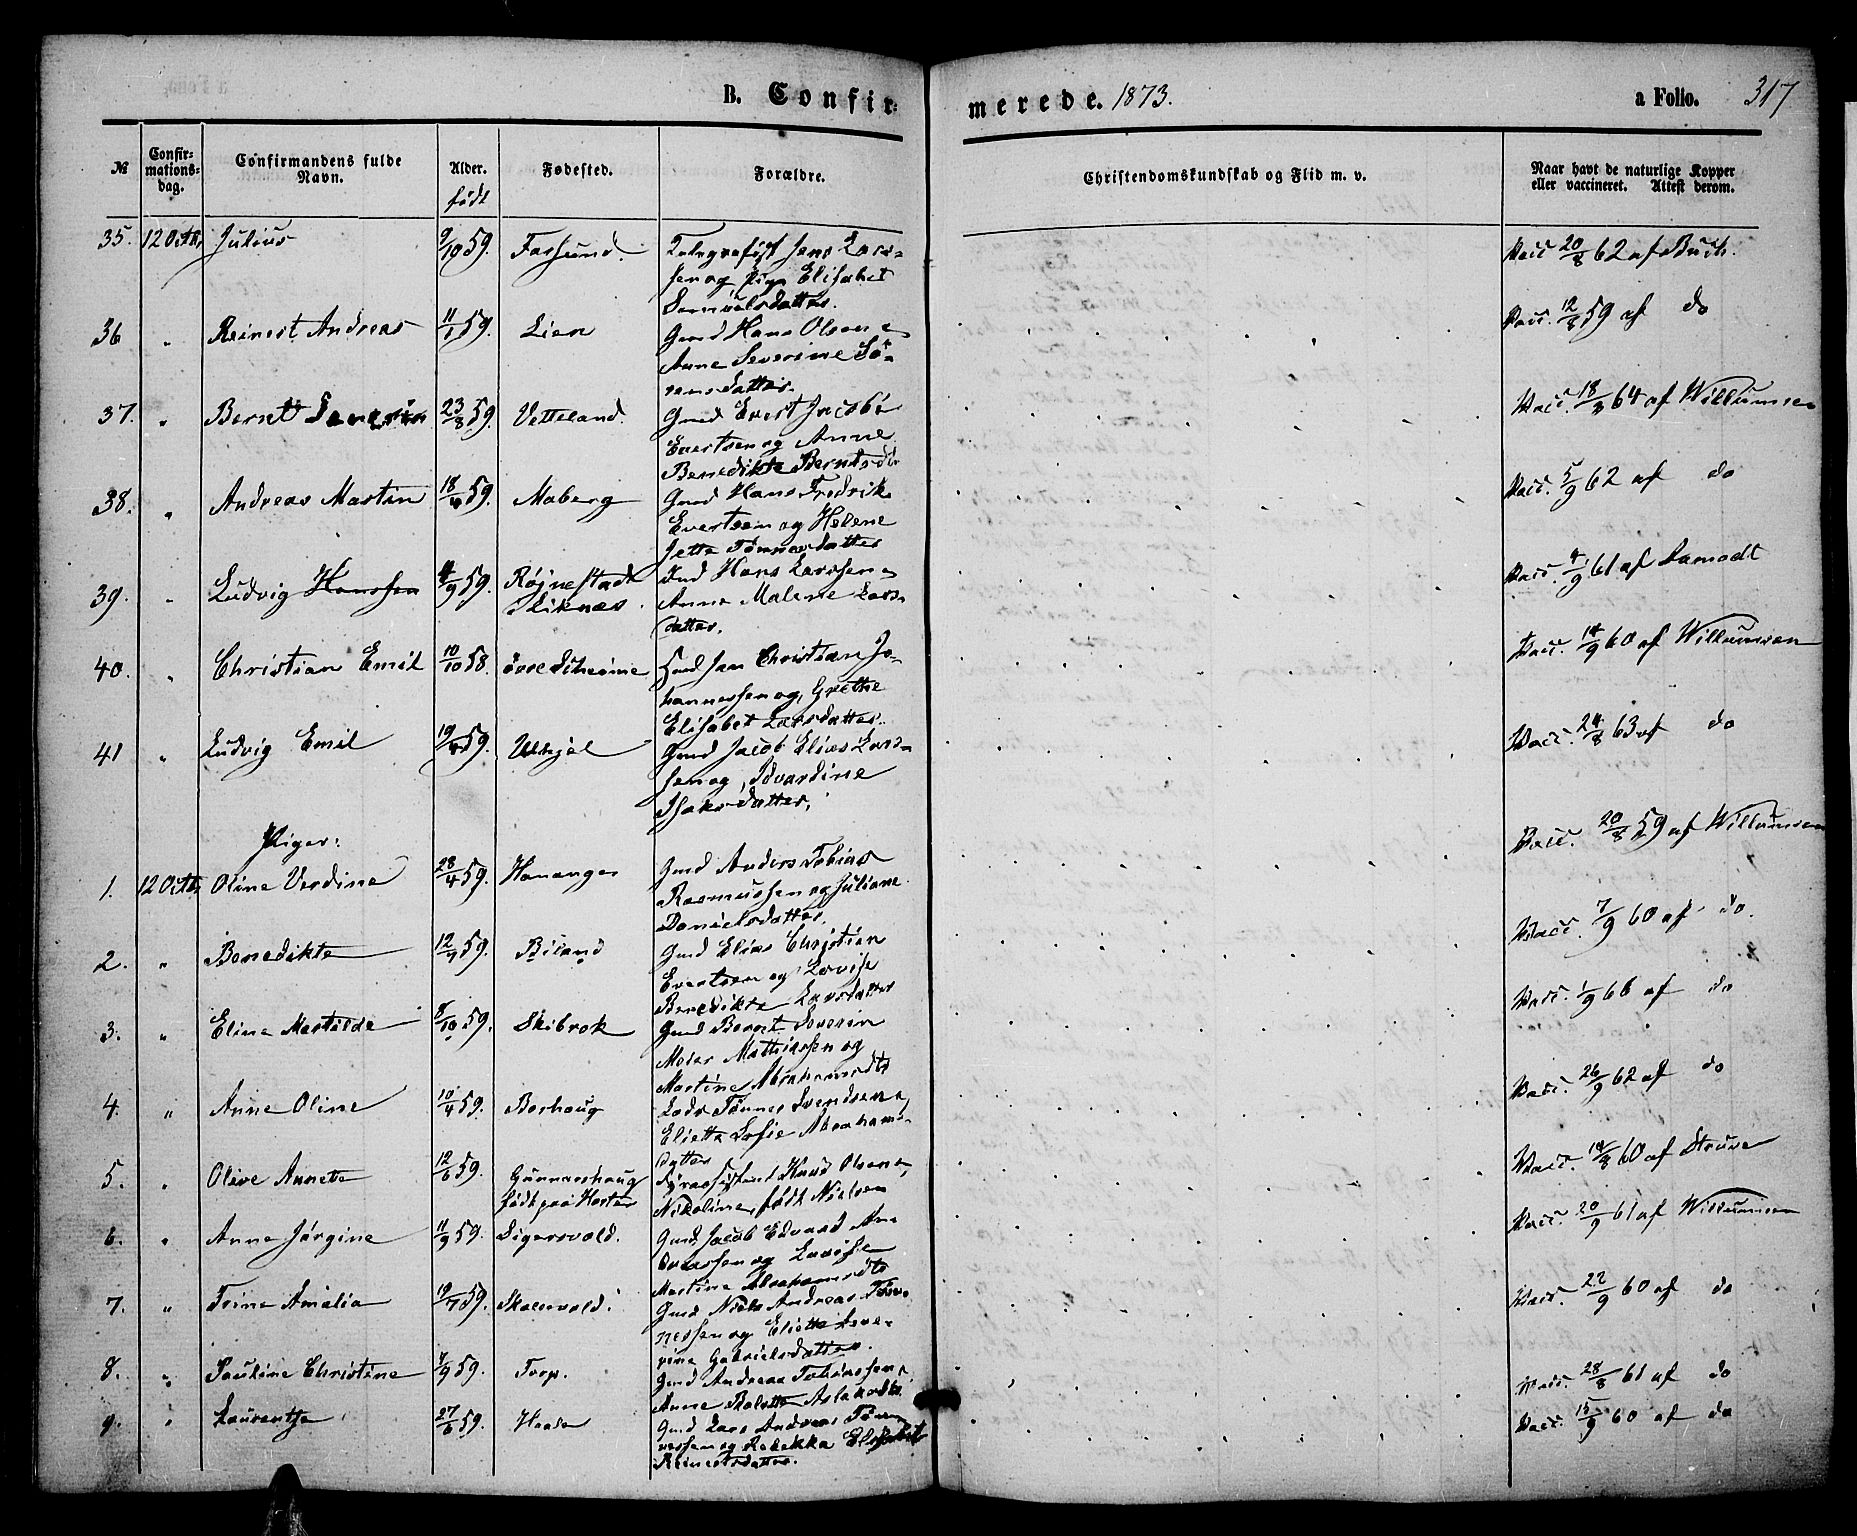 B. Confir-
merede. 1873.
a Folio. 317
№
Confir-
mations-
dag.
Confirmandens fulde
Navn.
Alder.
født
Fødested.
Forældre.
Christendomskundskab og Flid m. v.
Naar havt de naturlige Kopper
eller vaccineret. Attest derom.
35. 12 Octb. Julius 9/10 59. Farsund. Jens Lars-
sen og Pige Elisabet
Samuelsdatter.
Vacc. 20/8 62 af Buch.
36 " Reinert Andreas 11/1 59. Lien Gmd Hans Olsen &
Anne Severine Sø-
rensdatter.
Vacc. 12/8 59 af do
37. " Bernt Severin 23/8 59. Vetteland. Gmd Evert Jacobi
Evertsen og Anne
Benedikte Berntsdt
Vacc. 18/3 64 af Willumsen
38. " Andreas Martin 18/ 59. Maberg Gmd Hans Fredrik
Evertsen og Helene
Jette Tønnesdatter
Vacc. 5/9 62 af do
39. " Ludvig Hanssen 4/9 59. Røjnestad
i Liknæs. Ind Hans Larssen &
Anne Malene Lars-
datter.
Vacc. 4/9 61 af Aamodt
40. " Christian Emil 10/10 58. Gmd Jan Christian Jo-
hannessen og Grethe
Elisabet Larsdatter.
Vacc. 14/9 60 af Willumsen
41 " Ludvig Emil 19/ 59. Gmd Jacob Elias Lars-
sen og Edvardine
Isaksdatter.
Vacc. 24/8 63 af do
Piger:
1. 12 Octb. Oline Verdine 28/4 59. Hananger Gmd Anders Tobias
Rasmussen og Juliane
Danielsdatter.
Vacc. 20/8 59 af Willumsen
2. " Benedikte 12/9 59. Biland Gmd Elias Christian
Evertsen og Lovise
Benedikte Larsdatter
Vacc. 7/9 60 af do.
3. " Eline Matilde 8/10 59. Skibrok Gmd Bernt Severin
Meier Mathiassen og
Martine Abrahamsdt
Vacc. 1/9 66 af do
4. " Anne Oline 10/4 59. Borhaug Lods Tønnes Svendsen &
Eliette Sofie Abrahams-
datter
Vacc. 26/9 62 af do
5. " Olive Annette 12/6 59. Gunnarshaug
født paa Fyrassistent Knud Olsen &
Nikoline, født Nielsen
Vacc. 14/8 60 af Struve
6. " Anne Jørgine 11/9 59. Sigersvold. Gmd Jacob Edvard An-
dreassen og Lovise
Martine Abrahamsdt
Vacc. 20/9 61 af Willumsen
7. " Trine Amalia 19/7 59. Skeiervold. Gmd Niels Andreas Tøn-
nessen og Eliette Seve-
rine Gabrielsdatter.
Vacc. 22/9 60 af do
8. " Pauline Christine 4/9 59. Torp. Gmd Andreas Tobiassen &
Anne Aslaksdt.
Vacc. 28/8 61 af do
9. " Laurentse 27/6 59. Gmd Lars Andreas Tøn-
nessen og Rebekka Elisabet
Reinertsdatter.
Vacc. 15/9 60 af do